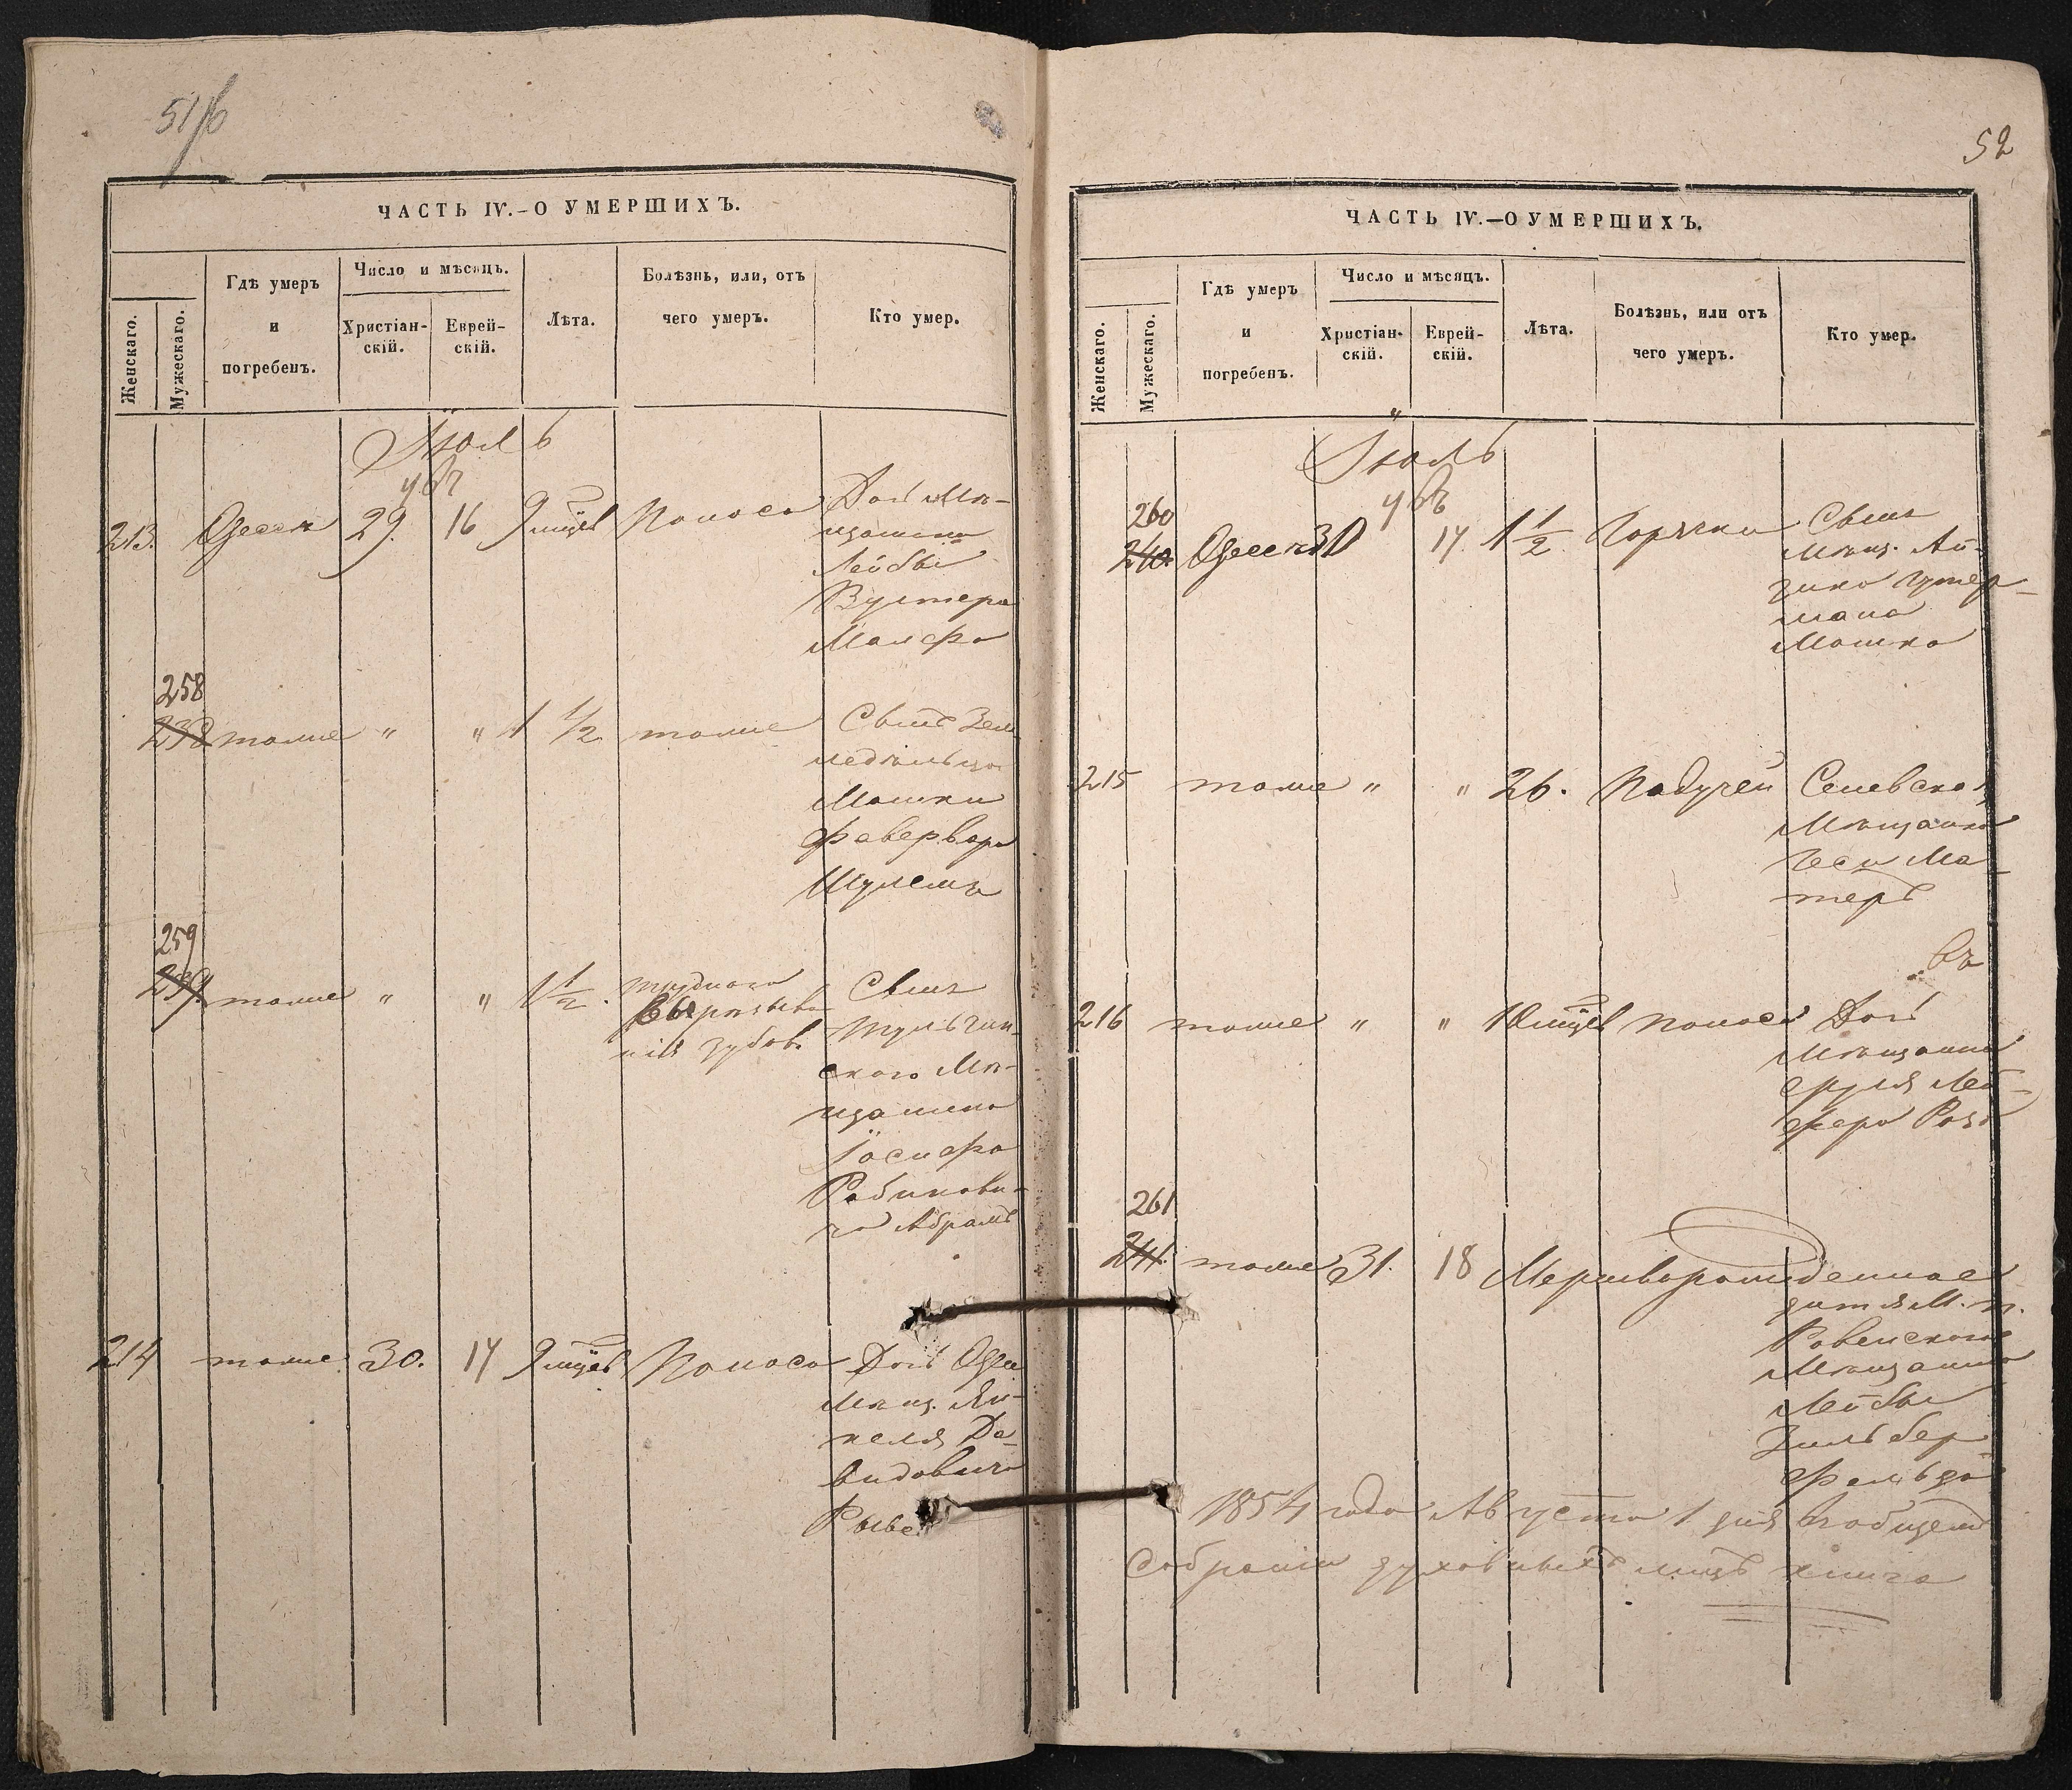 51/б
ЧАСТЬ IV.-О УМЕРШИХЪ.
Женскаго.
Мужескаго.
Гдѣ умеръ
и
погребенъ.
Число и мѣсяцъ.
Христіан-
скій.
Еврей-
скій.
Лѣта.
Болѣзнь, или, отъ
чего умеръ.
Кто умеръ.
Іюль
213. Одесса 29. 16 9 мцев Поноса Дочь Мѣ-
щанина
Лейбы
Вултера
Малфа
258
238 тоже " " 1 1/2 тоже Сынъ Зем
ледѣльца
Мошки
Фаервара
Шулемъ
259
239. тоже " " 1 1/2. труднаго Сынъ
вырѣзыва Тульчин-
нія зубовъ
скаго Мѣ-
щанина
Іосифа
Рабинови-
ча Абрамъ
214 тоже 30. 17 9 мцев Поноса Дочь Одес
Мѣщ. Ян-
келя Да-
видовича
52
ЧАСТЬ IV.—О УМЕРШИХЪ.
Женскаго.
Мужескаго.
Гдѣ умеръ
и
погребенъ.
Число и мѣсяцъ.
Христіан-
скій.
Еврей-
скій.
Лѣта.
Болѣзнь, или отъ
чего умеръ.
Кто умеръ.
Іюль
260
240. Одесса 30 17. 1 1/2 Горячки Сынъ
Мѣщ. Ай-
зика Гутер-
мана
Мошко
215 тоже " " 26. Падучей
Мѣщанка
Песи Ма
теръ
216 тоже " " 10 мцев поноса Дочь
Мѣщанина
Сруля Лей-
фера Розъ
261
241. тоже 31. 18 Мертворожденное
дитя М. п.
Ровенскаго
Мѣщанина
Лейбы
Зильбер
фельда
1854 года Августа 1 дня въ общемъ
собраніи духовныхъ лицъ книга